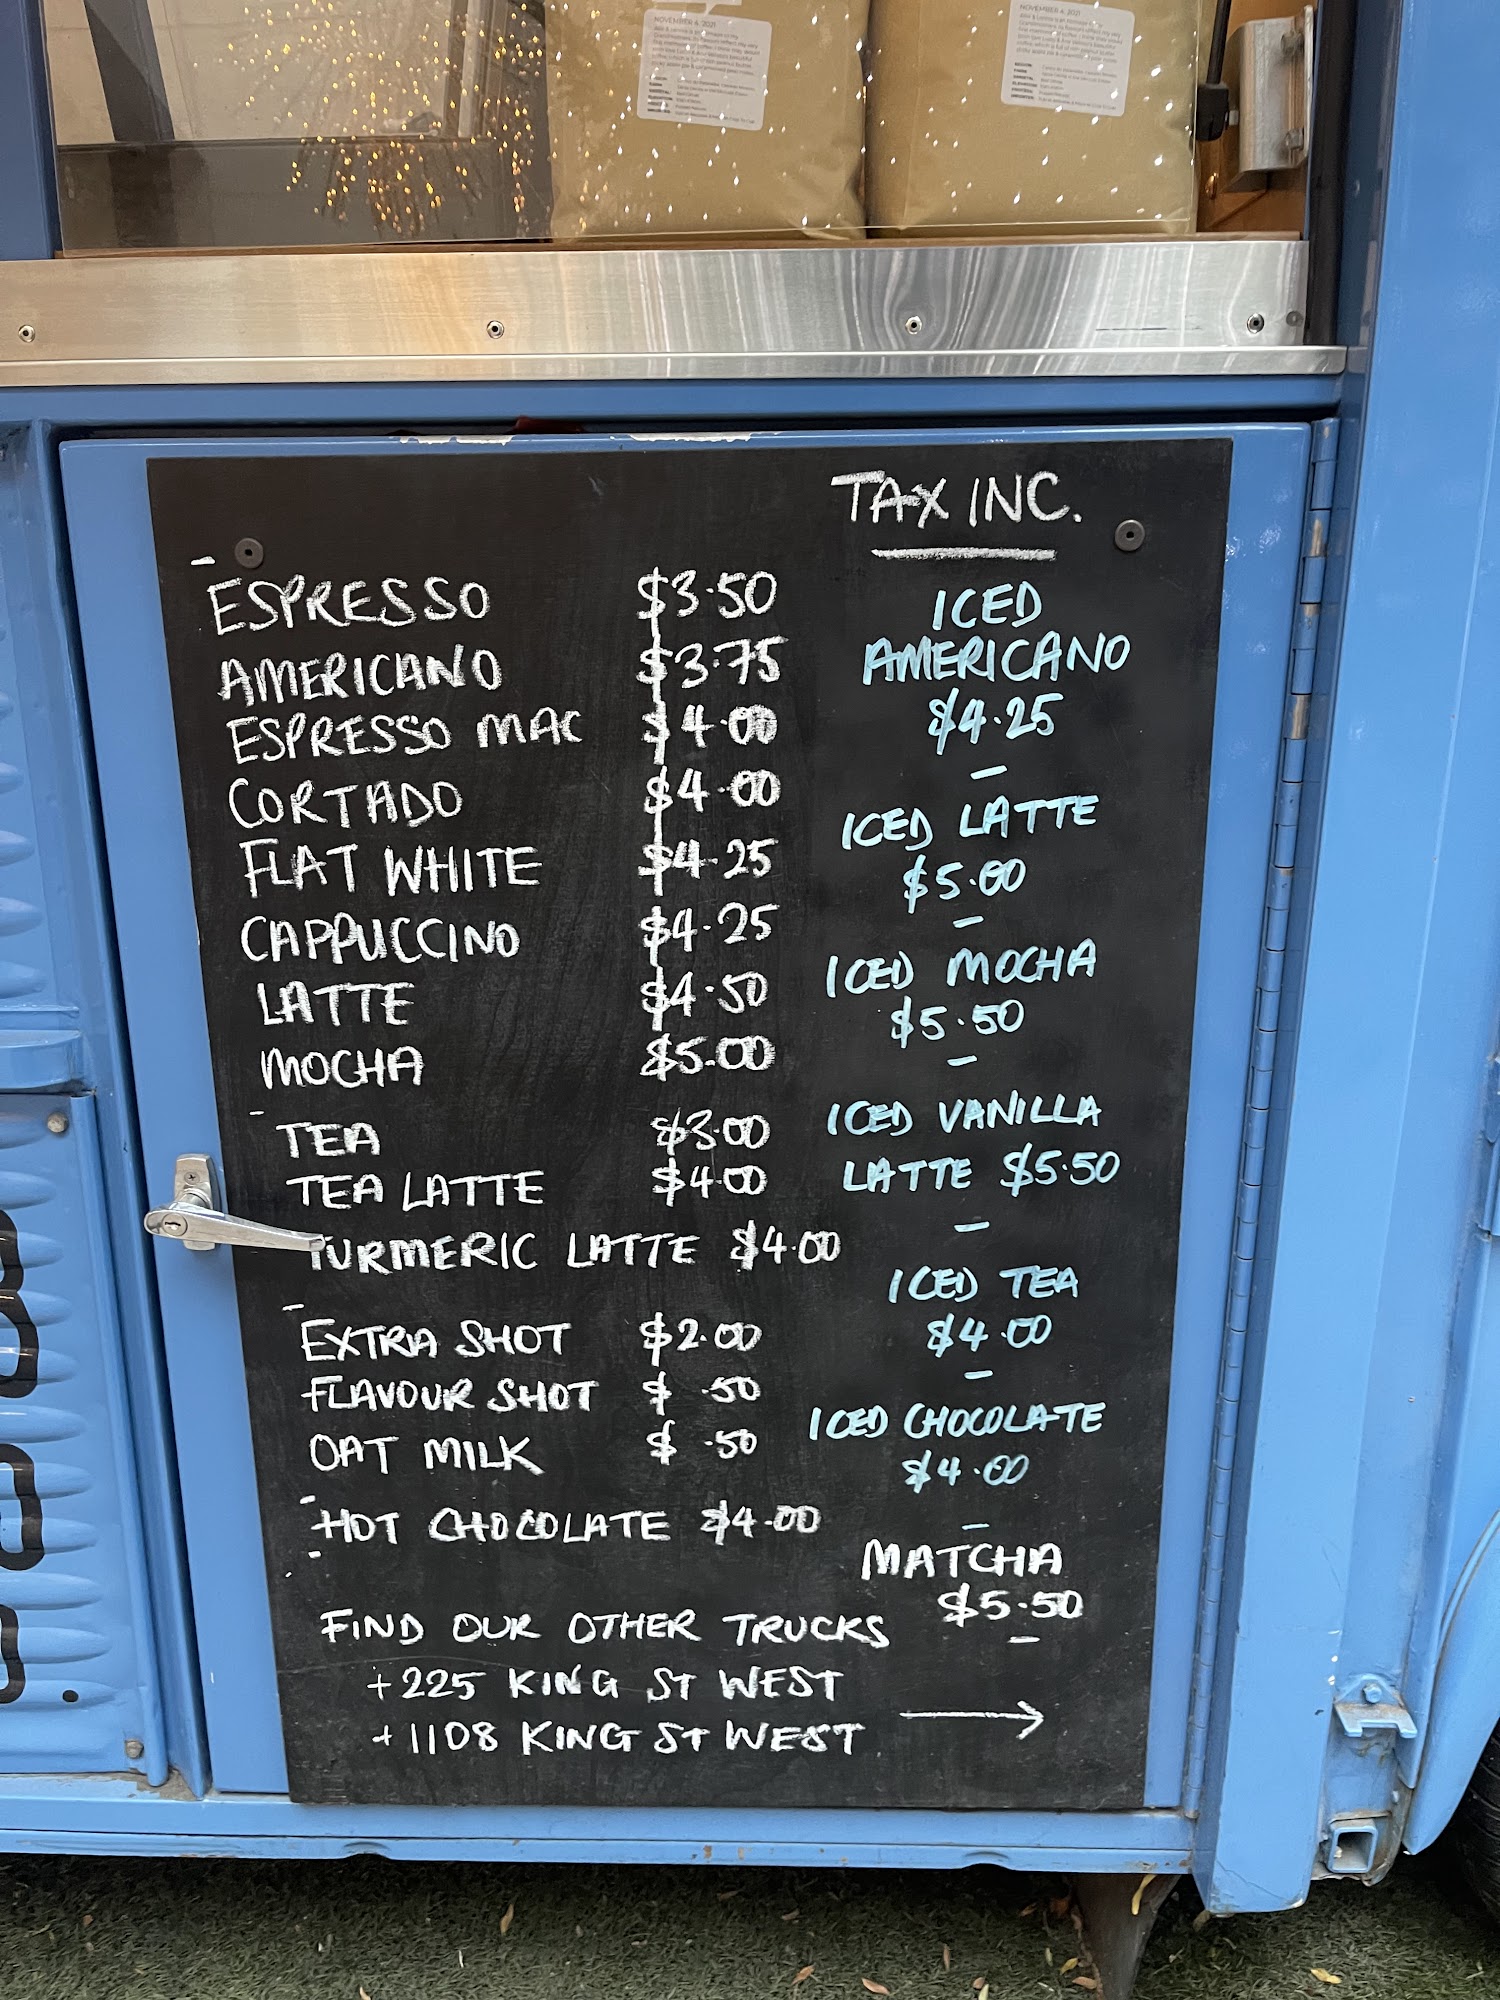 NOVEMBER 4, 2021
NOVEMBER 4, 2021
TAX INC.
ESPRESSO $3.50
AMERICANO $3.75
ESPRESSO MAC $4.00
CORTADO $4.00
FLAT WHITE $4.25
CAPPUCCINO $4.25
LATTE $4.50
MOCHA $5.00
TEA $3.00
TEA LATTE $4.00
TURMERIC LATTE $4.00
EXTRA SHOT $2.00
FLAVOUR SHOT $ .50
OAT MILK $ .50
HOT CHOCOLATE $4.00
ICED
AMERICANO
$4.25
ICED LATTE
$5.00
ICED MOCHA
$5.50
ICED VANILLA
LATTE $5.50
ICED TEA
$4.00
ICED CHOCOLATE
$4.00
MATCHA
$5.50
FIND OUR OTHER TRUCKS
+225 KING ST WEST
+1108 KING ST WEST